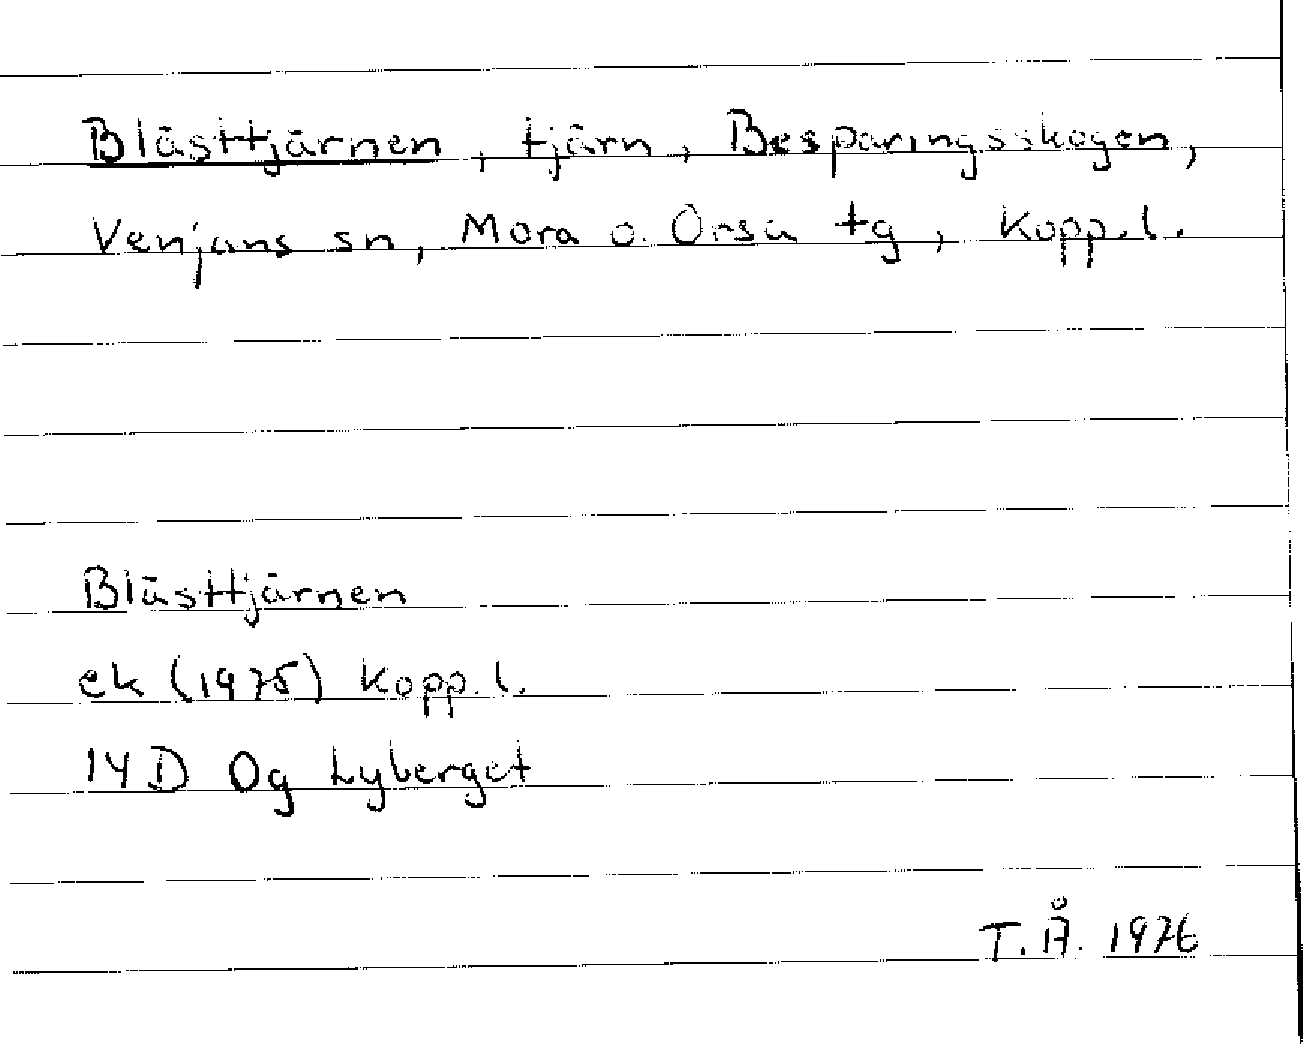 Blästtjärnen, tjärn, Besparingsskogen,
Venjans sn, Mora o. Orsa tg, Kopp.l.
Blästtjärnen
ek (1975) Kopp.l.
14D 0g Lyberget
T.Å. 1976